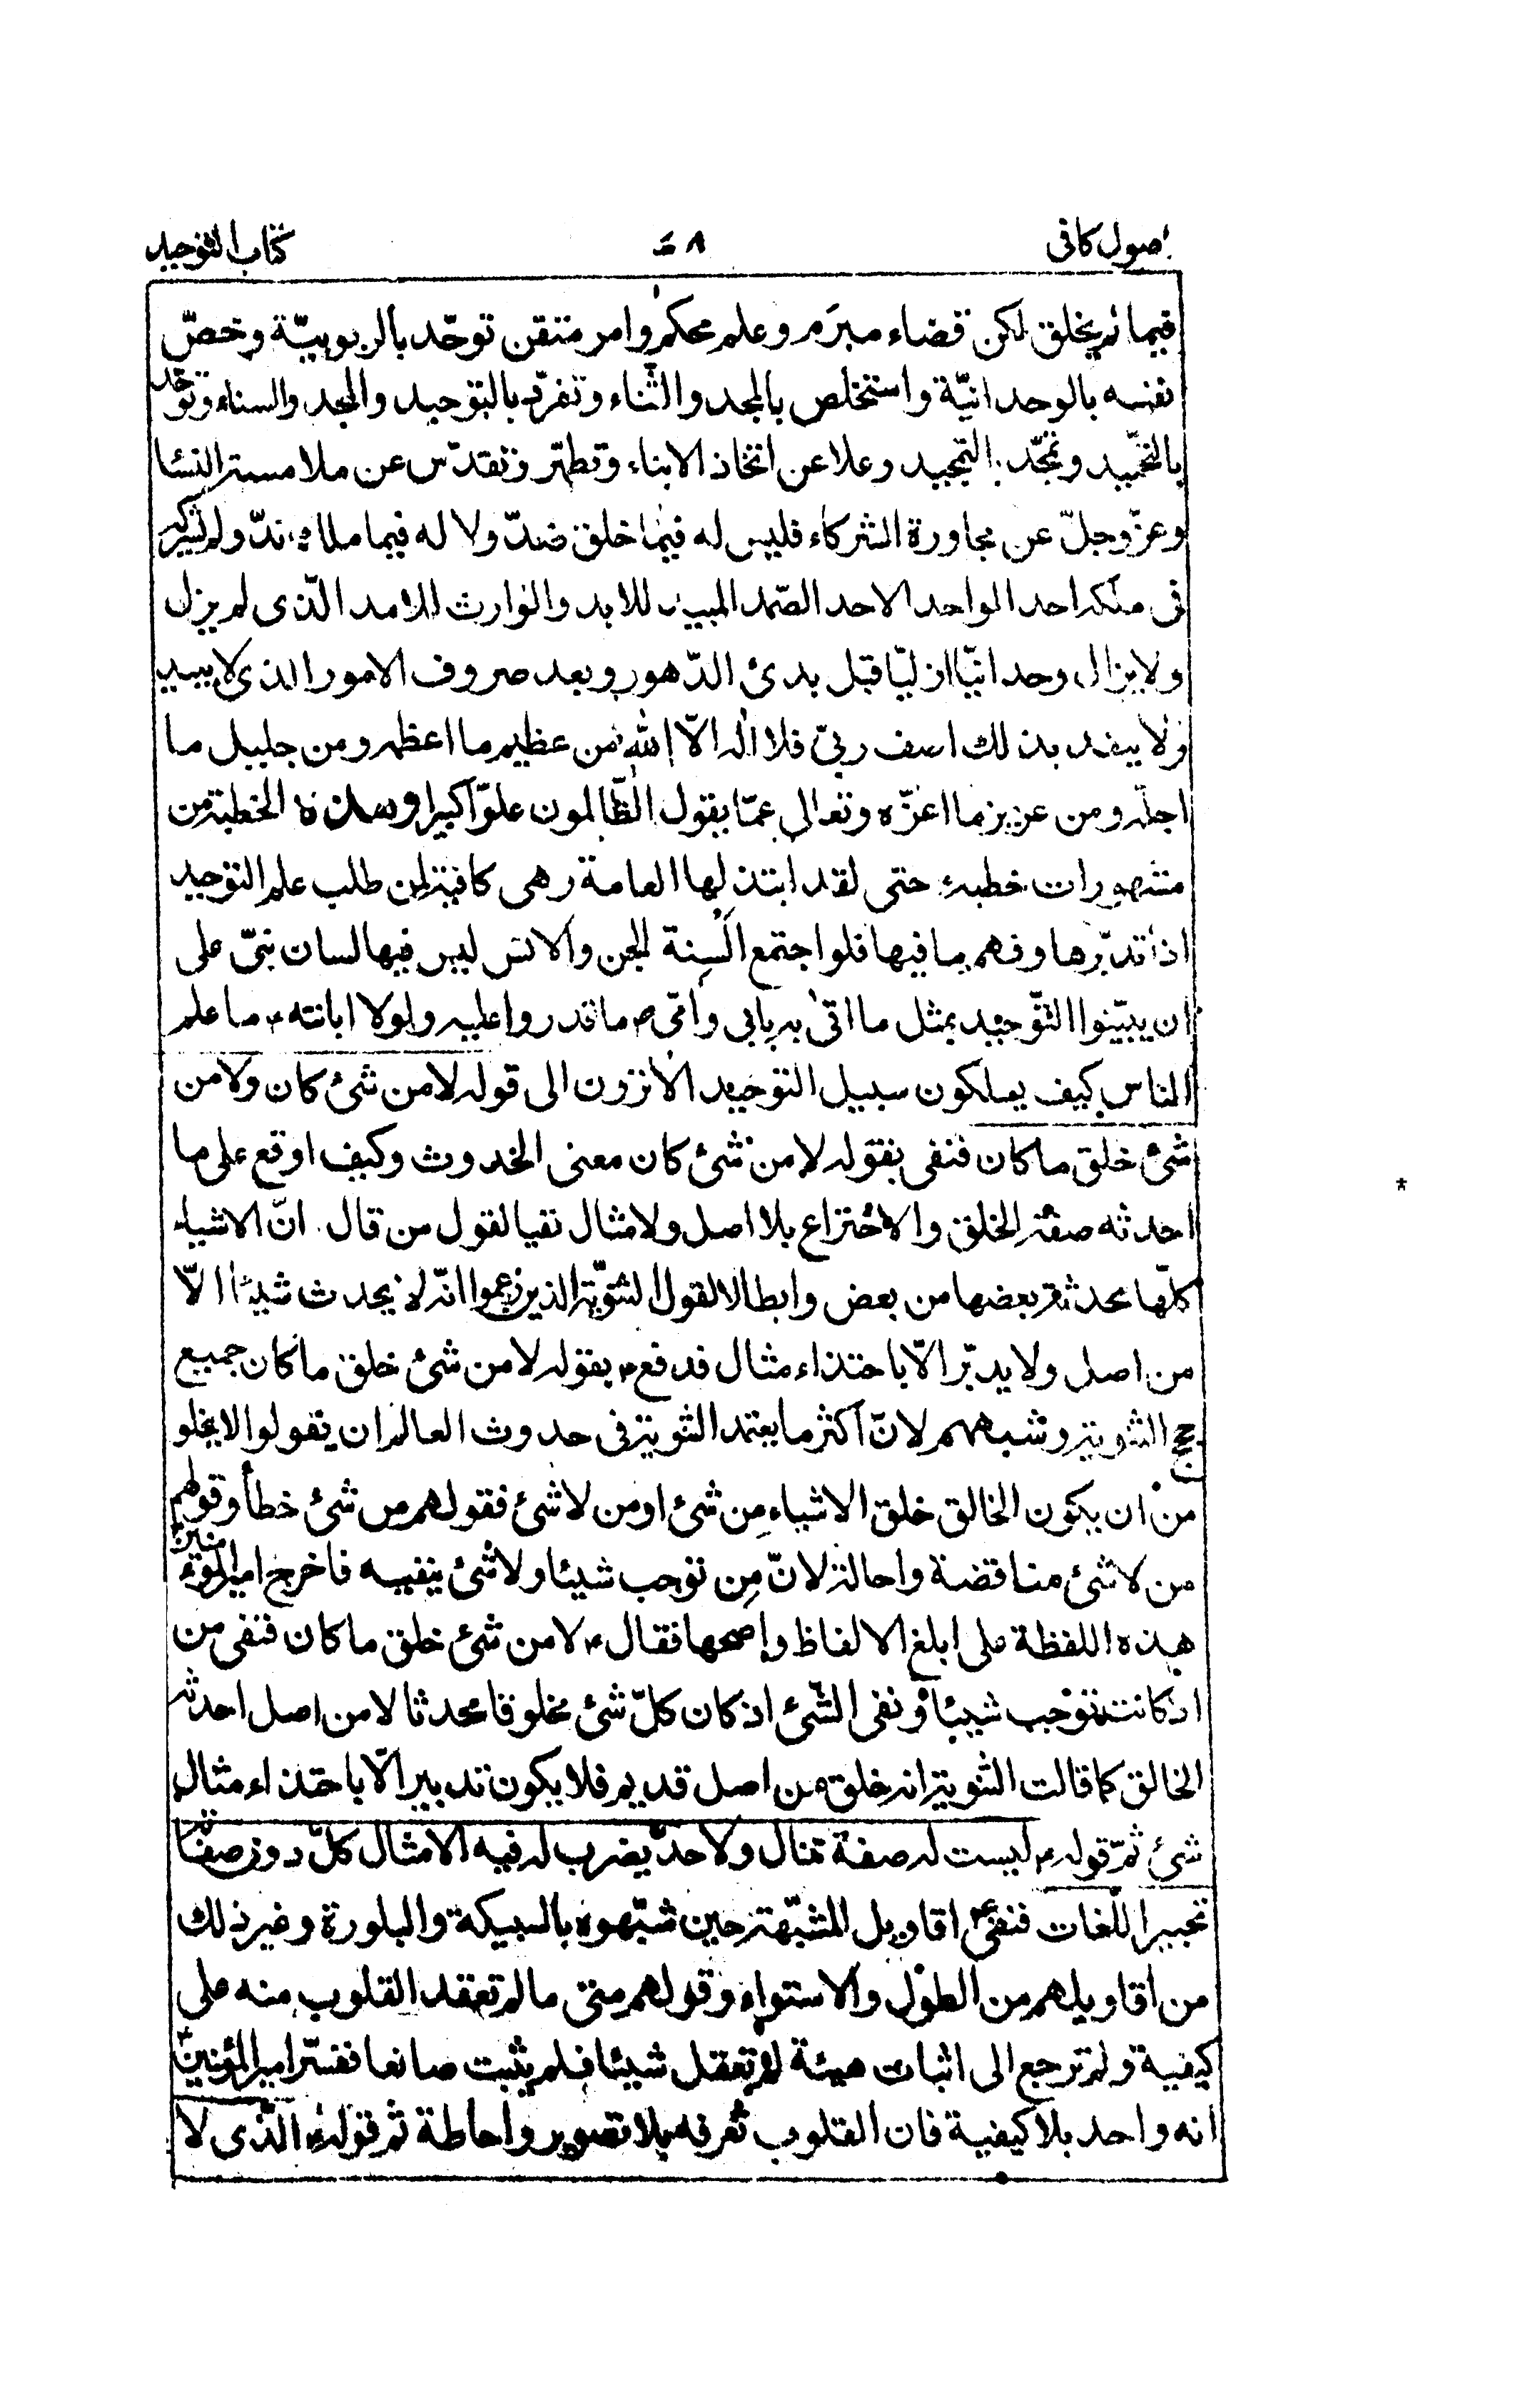 اصول كافى ٨٠ كتاب التوحيد
فيما لم يخلق لكن قضاء مبرم وعلم محكم وامر متقن توحّد بالربوبيّة وخصّ
نفسه بالوحدانيّة واستخلص بالمجد والثّناء وتفرّد بالتوحيد والمجد والسناء وتوحّد
بالتّحميد وتمجّد بالتمجيد وعلا عن اتخاذ الابناء وتطهّر وتقدّس عن ملامسة النسا
وعزّ وجلّ عن مجاورة الشركاء فليس له فيما خلق ضدّ ولا له فيما ملك ندّ ولم يشركه
فى ملكه احد الواحد الاحد الصّمد المبيد للابد والوارث للامد الّذى لم يزل
ولا يزال وحدانيّا ازليّا قبل بدئ الدّهور وبعد صروف الامور الذى لا يبيد
ولا ينفد بذلك اصف ربىّ فلا اله الاّ الله من عظيم ما اعظمه ومن جليل ما
اجلّه ومن عزيز ما اعزّه وتعالى عمّا يقول الظّالمون علوّا كبيرا وهذه الخطبة من
مشهورات خطبه ع حتى لقد ابتذلها العامة وهى كافية لمن طلب علم التوحيد
اذا تدبّرها وفهم ما فيها فلو اجتمع السنة الجن والانس ليس فيها لسان نبىّ على
ان يبيّنوا التّوحيد بمثل ما اتى به بابى وامّى ص ما قدروا عليه ولولا ابانته ع ما علم
الناس كيف يسلكون سبيل التوحيد الا ترون الى قوله لا من شئ كان ولا من
شئ خلق ما كان فنفى بقوله لا من شئ كان معنى الحدوث وكيف اوقع على ما
احدثه صفة الخلق والاختراع بلا اصل ولا مثال نفيا لقول من قال انّ الاشياء
كلّها محدثة بعضها من بعض وابطالا لقول الثنويّة الذين زعموا انّه لا يحدث شيئا الاّ
من اصل ولا يدبّر الاّ باحتذاء مثال فدفع ع بقوله لا من شئ خلق ما كان جميع
حجج الثنوية وشبههم لانّ اكثر ما يعتمد الثنوية فى حدوث العالم ان يقولوا لا يخلو
من ان يكون الخالق خلق الاشياء من شئ او من لا شئ فقولهم من شئ خطأ وقولهم
من لا شئ مناقضة واحالة لانّ من توجب شيئا ولا شئ ينفيه فاخرج امير المؤمنين ع
هذه اللفظة على ابلغ الالفاظ واصحها فقال ع لا من شئ خلق ما كان فنفى من
اذ كانت توجب شيئا ونفى الشّئ اذ كان كلّ شئ مخلوقا محدثا لا من اصل احدثه
الخالق كما قالت الثنوية انه خلق من اصل قديم فلا يكون تدبير الاّ باحتذاء مثال
شئ ثمّ قوله ع ليست له صفة تنال ولا حدّ يضرب له فيه الامثال كلّ دون صفاته
تحبير اللّغات فنفى ع اقاويل المشبّهة حين شبّهوه بالسبيكة والبلورة وغير ذلك
من اقاويلهم من الطول والاستواء وقولهم متى ما لم تعقد القلوب منه على
كيفية ولم ترجع الى اثبات هيئة لم تعقل شيئا فلم يثبت صانعا ففسّر امير المؤمنين ع
انه واحد بلا كيفية فان القلوب تعرفه بلا تصوير واحاطة ثم قوله ع الّذى لا